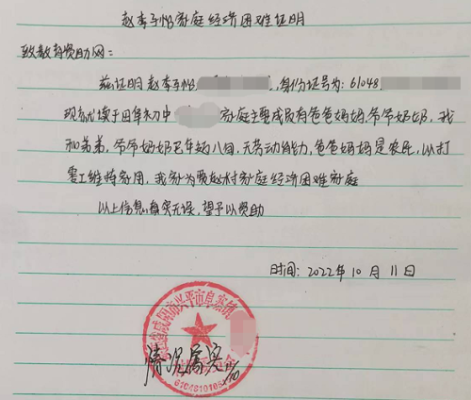 赵李子怡家庭经济困难证明
致教育资助网:
兹证明赵李子怡, ,身份证号为:61048
现就读于四年初中 家庭主要成员有爸爸妈妈,爷爷奶奶,我
和弟弟,爷爷奶奶已年迈八旬,无劳动能力,爸爸妈妈是农民,以打
零工维持家用,我家为 村家庭经济困难家庭
以上信息真实无误,望予以资助
时间:2022年10月11日
省咸阳市兴平市阜寨镇
情况属实